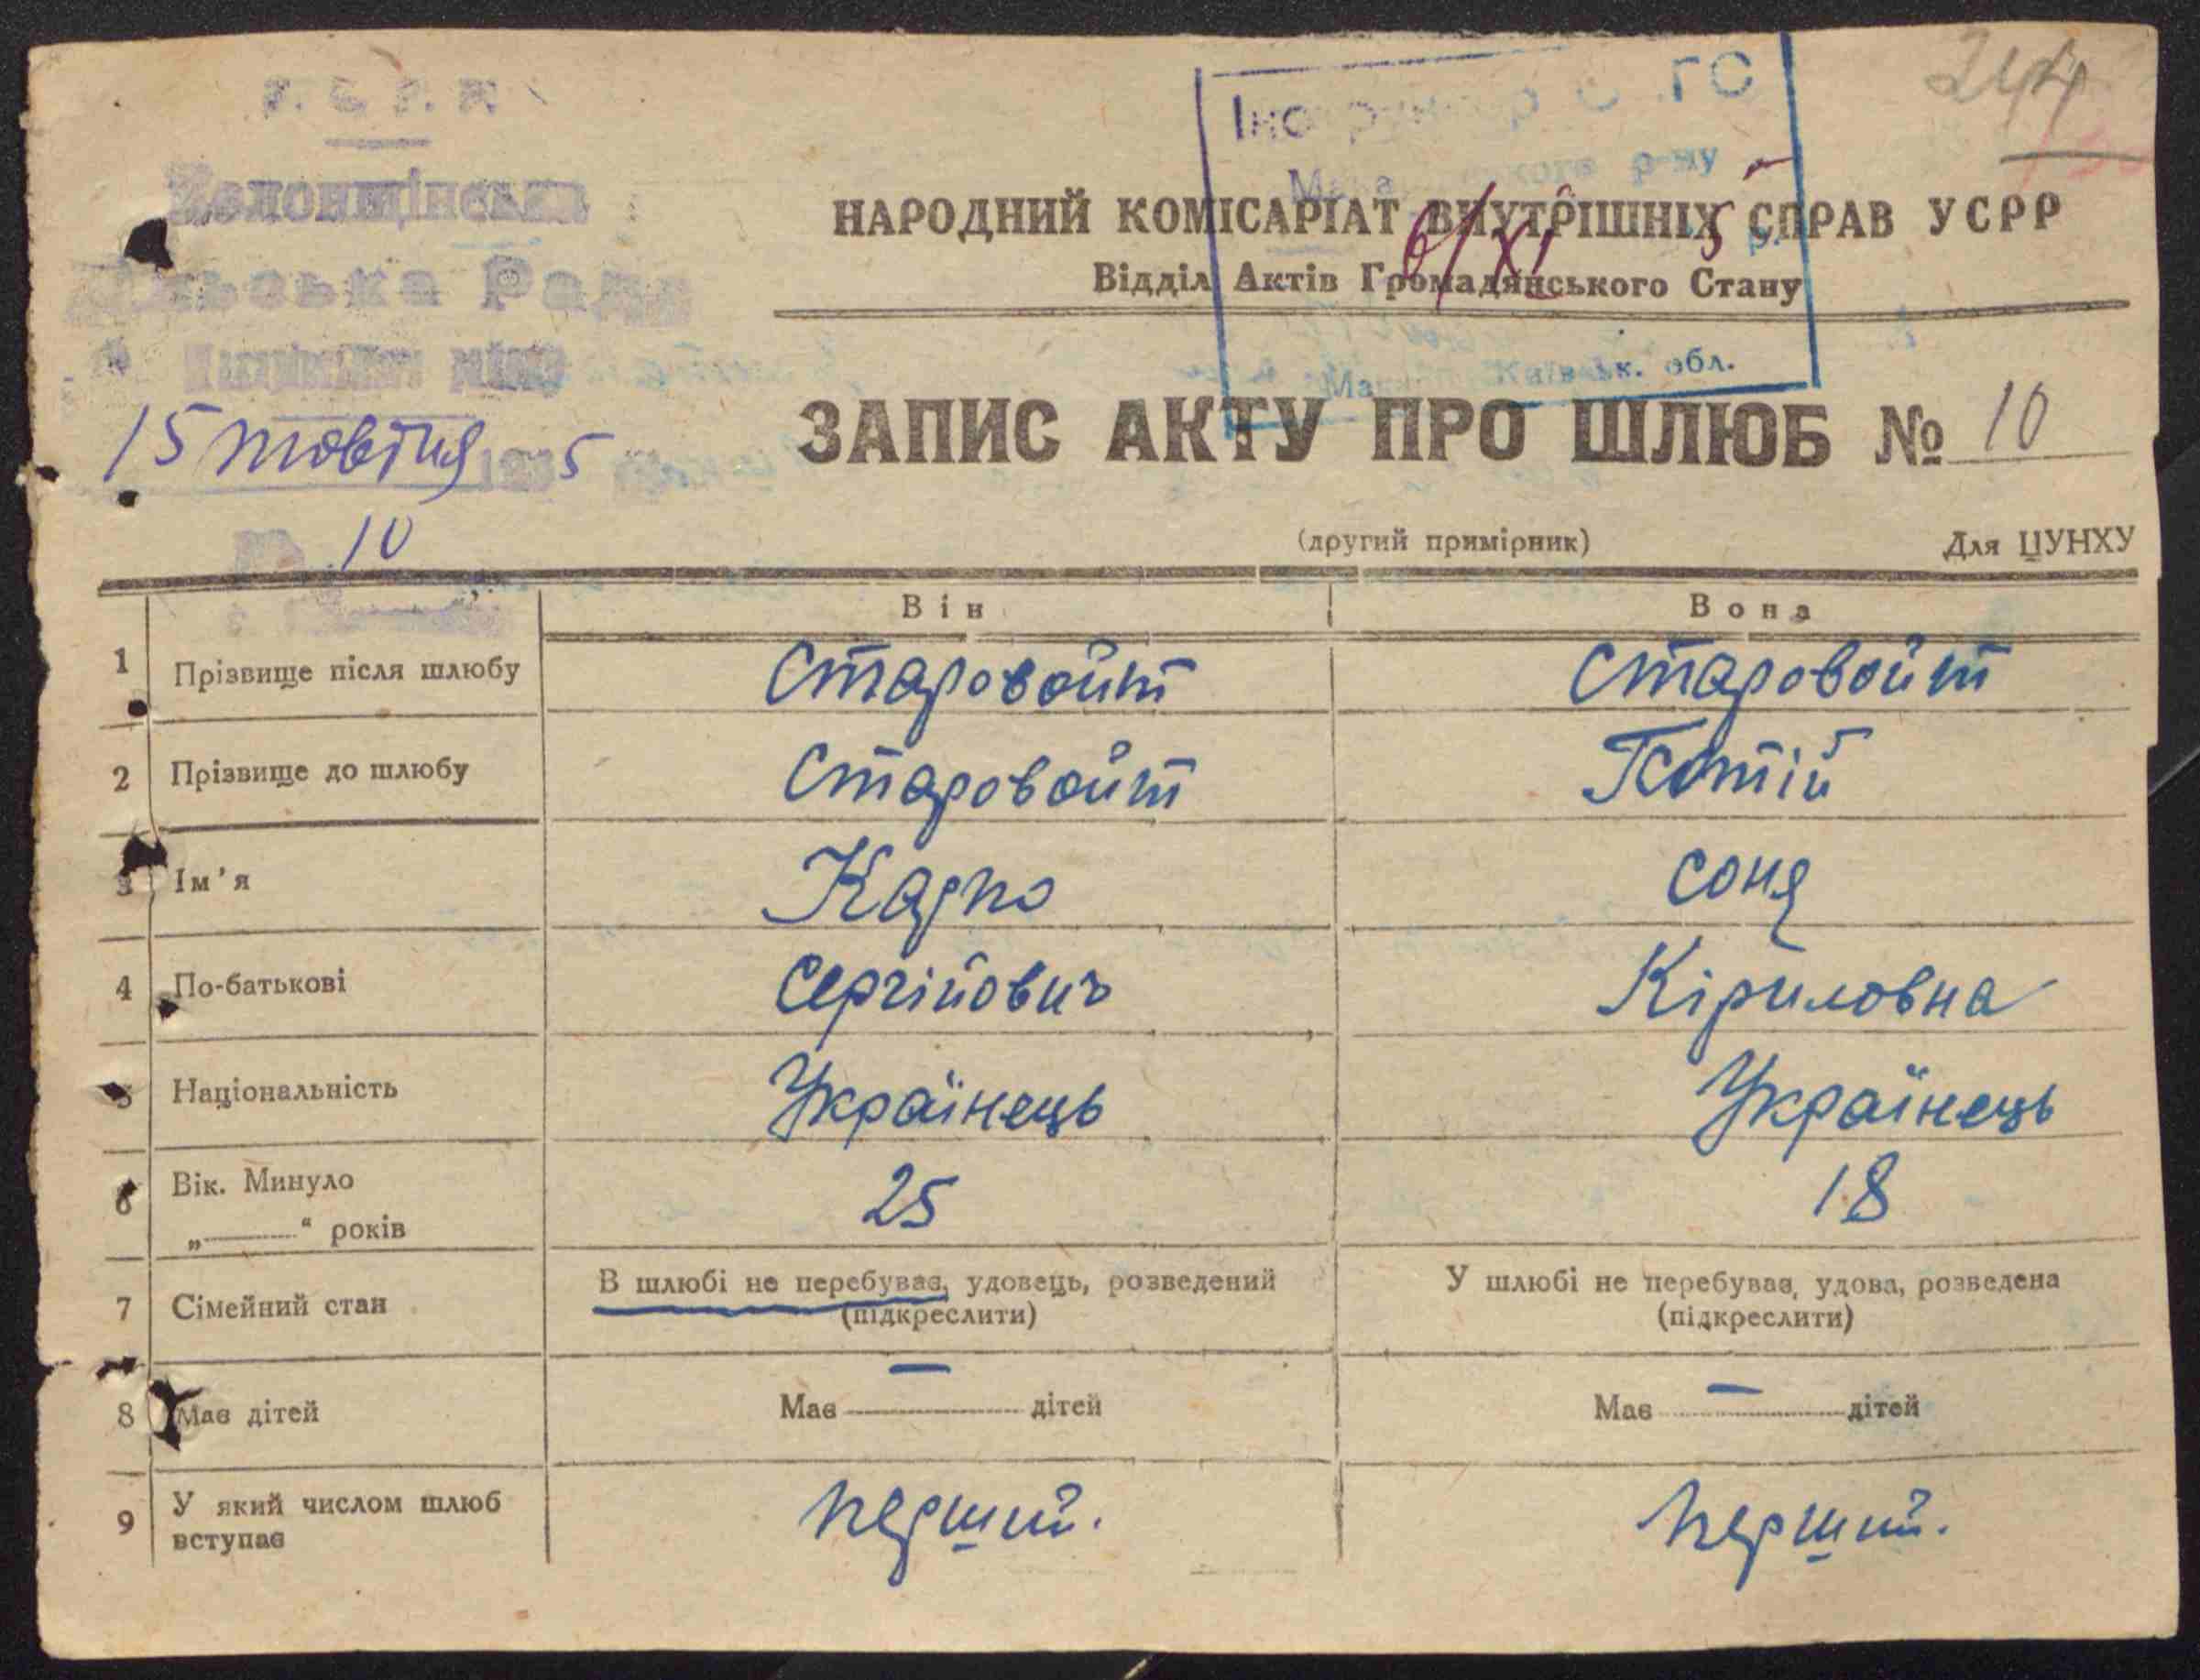 У. С. Р. Р.
Сільська Рада
15 жовтня 1935
10
244
Інспектор
р-ну
Київськ. обл.
6/XI 5
НАРОДНИЙ КОМІСАРІАТ ВНУТРІШНІХ СПРАВ УСРР
Відділ Актів Громадянського Стану
ЗАПИС АКТУ ПРО ШЛЮБ № 10
(другий примірник) Для ЦУНХУ
Він Вона
1 Прізвище після шлюбу Старовойт Старовойт
2 Прізвище до шлюбу Старовойт Потій
3 Ім'я Карпо Соня
4 По-батькові Сергійович Кіриловна
5 Національність Українець Українець
6 Вік. Минуло 25 18
„ — “ років
7 Сімейний стан В шлюбі не перебуває, удовець, розведений У шлюбі не перебуває, удова, розведена
(підкреслити) (підкреслити)
8 Має дітей Має — дітей Має — дітей
9 У який числом шлюб вступає перший. перший.